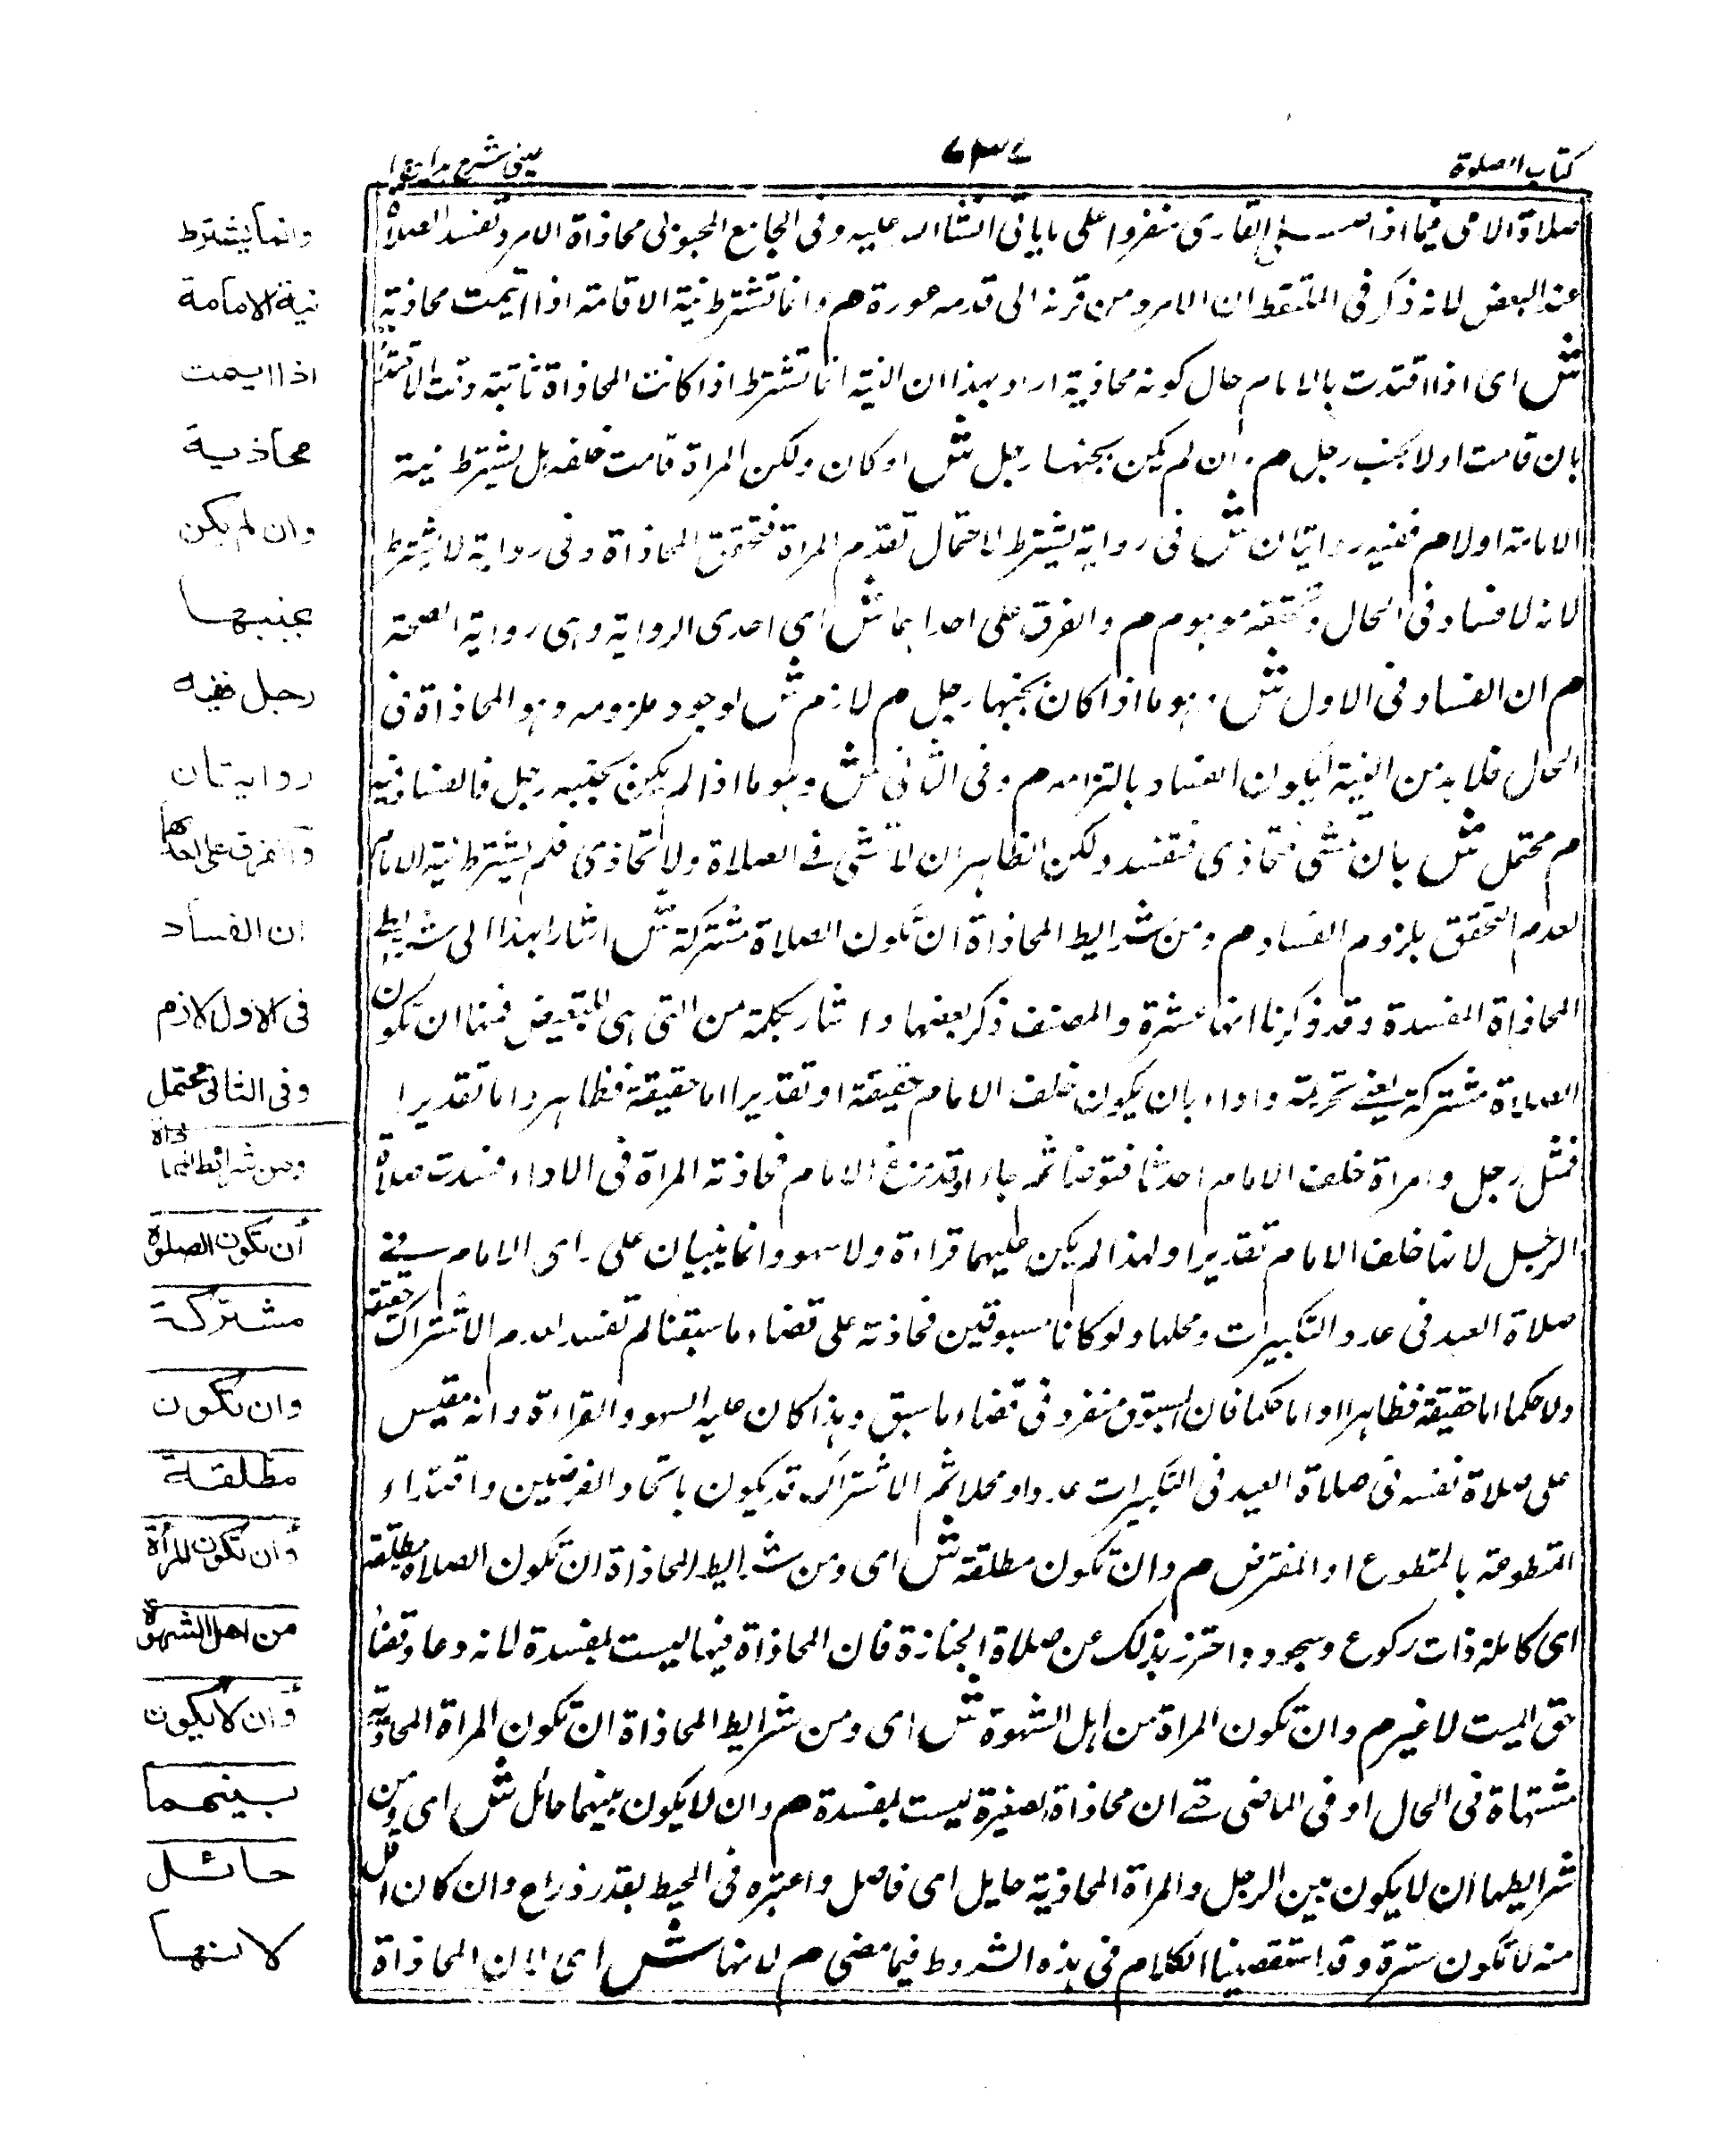 كتاب الصلوة
عينى شرح هداية
صلاة الامى فيما اذا صلى القارى منفردا على ما ياتى انشاالله عليه وفى الجامع المحبوبى محاذاة الامرد تفسد الصلاة
عند البعض لانه ذكر فى الملتقط ان الامرد من قرنه الى قدمه عورة هم وانما تشترط نية الاقامته اذا ائتمت محاذية
ش اى اذا اقتدت بالامام حال كونه محاذية اراد بهذا ان النية انما تشترط اذا كانت المحاذاة ثابتة وقت الاقتداء
بان قامت اولا بجنب رجل م وان لم يكن بجنبها رجل ش او كان ولكن المراة قامت خلفه هل يشترط نية
الامامة اولا م ففيه روايتان ش فى رواية يشترط لاحتمال تقدم المراة فتحقق المحاذاة وفى رواية لا يشترط
لانه لا فساد فى الحال وتحققه موهوم م والفرق على احدابهما ش اى احدى الرواية وهى رواية الصحة
م ان الفساد فى الاول ش وهو ما اذا كان بجنبها رجل م لازم ش لوجود ملزومه وهو المحاذاة فى
الحال فلا بد من النية ليكون الفساد بالتزامه م وفى الثانى ش وهو ما اذا لم يكن بجنبه رجل فالفساد فيه
م محتمل ش بان تمشى فتحاذى فتفسد ولكن الظاهر ان لا تمشى فى الصلاة ولا تحاذى فلم يشترط نية الامام
لعدم التحقق بلزوم الفساد م ومن شرايط المحاذاة ان تكون الصلاة مشتركة ش اشار بهذا الى شرايط
المحاذاة المفسدة وقد ذكرنا انها عشرة والمصنف ذكر بعضها واشار بكلمة من التى هى للتبعيض فمنها ان تكون
الصلاة مشتركة يعنى تحريمة واداء بان يكون خلف الامام حقيقة او تقديرا اما حقيقة فظاهر واما تقديرا
فمثل رجل وامراة خلف الامام احدثا فتوضئا ثم جاءا وقد فرغ الامام فحاذته المراة فى الاداء فسدت صلاة
الرجل لانهما خلف الامام تقديرا ولهذا لم يكن عليهما قراءة ولا سهو وانما يبنيان على راى الامام فى
صلاة العيد فى عدد التكبيرات ومحلها ولو كانا مسبوقين فحاذته على قضاء ما سبقا لم تفسد لعدم الاشتراك حقيقة
ولا حكما اما حقيقة فظاهرا واما حكما فان المسبوق منفرد فى قضاء ما سبق ولهذا كان عليه السهو والقراءة وانه مقيس
على صلاة نفسه فى صلاة العيد فى التكبيرات عددا ومحلا ثم الاشتراك قد يكون باتحاد الفرضين واقتداء
المتطوعة بالمتطوع او المفترض م وان تكون مطلقة ش اى ومن شرايط المحاذاة ان تكون الصلاة مطلقة
اى كاملة ذات ركوع وسجود واحترز بذلك عن صلاة الجنازة فان المحاذاة فيها ليست بمفسدة لانه دعا وقضاء
حق الميت لا غير م وان تكون المراة من اهل الشهوة ش اى ومن شرايط المحاذاة ان تكون المراة المحاذية
مشتهاة فى الحال او فى الماضى حتى ان محاذاة الصغيرة ليست بمفسدة هم وان لا يكون بينهما حائل ش اى ومن
شرايطها ان لا يكون بين الرجل والمراة المحاذية حايل اى فاصل واعتبره فى المحيط بقدر ذراع وان كان اقل
منه لا تكون سترة وقد استقصينا الكلام فى هذه الشروط فيما مضى م لانها ش اى لان المحاذاة
وانما يشترط
نية الامامة
اذا ائتمت
محاذية
وان لم يكن
بجنبها
رجل ففيه
روايتان
والفرق على احدهما
ان الفساد
فى الاول لازم
وفى الثانى محتمل
ومن شرائط المحاذاة
أن تكون الصلوة
مشتركة
وان تكون
مطلقة
وأن تكون المرأة
من اهل الشهوة
وأن لا يكون
بينهما
حائل
لانها